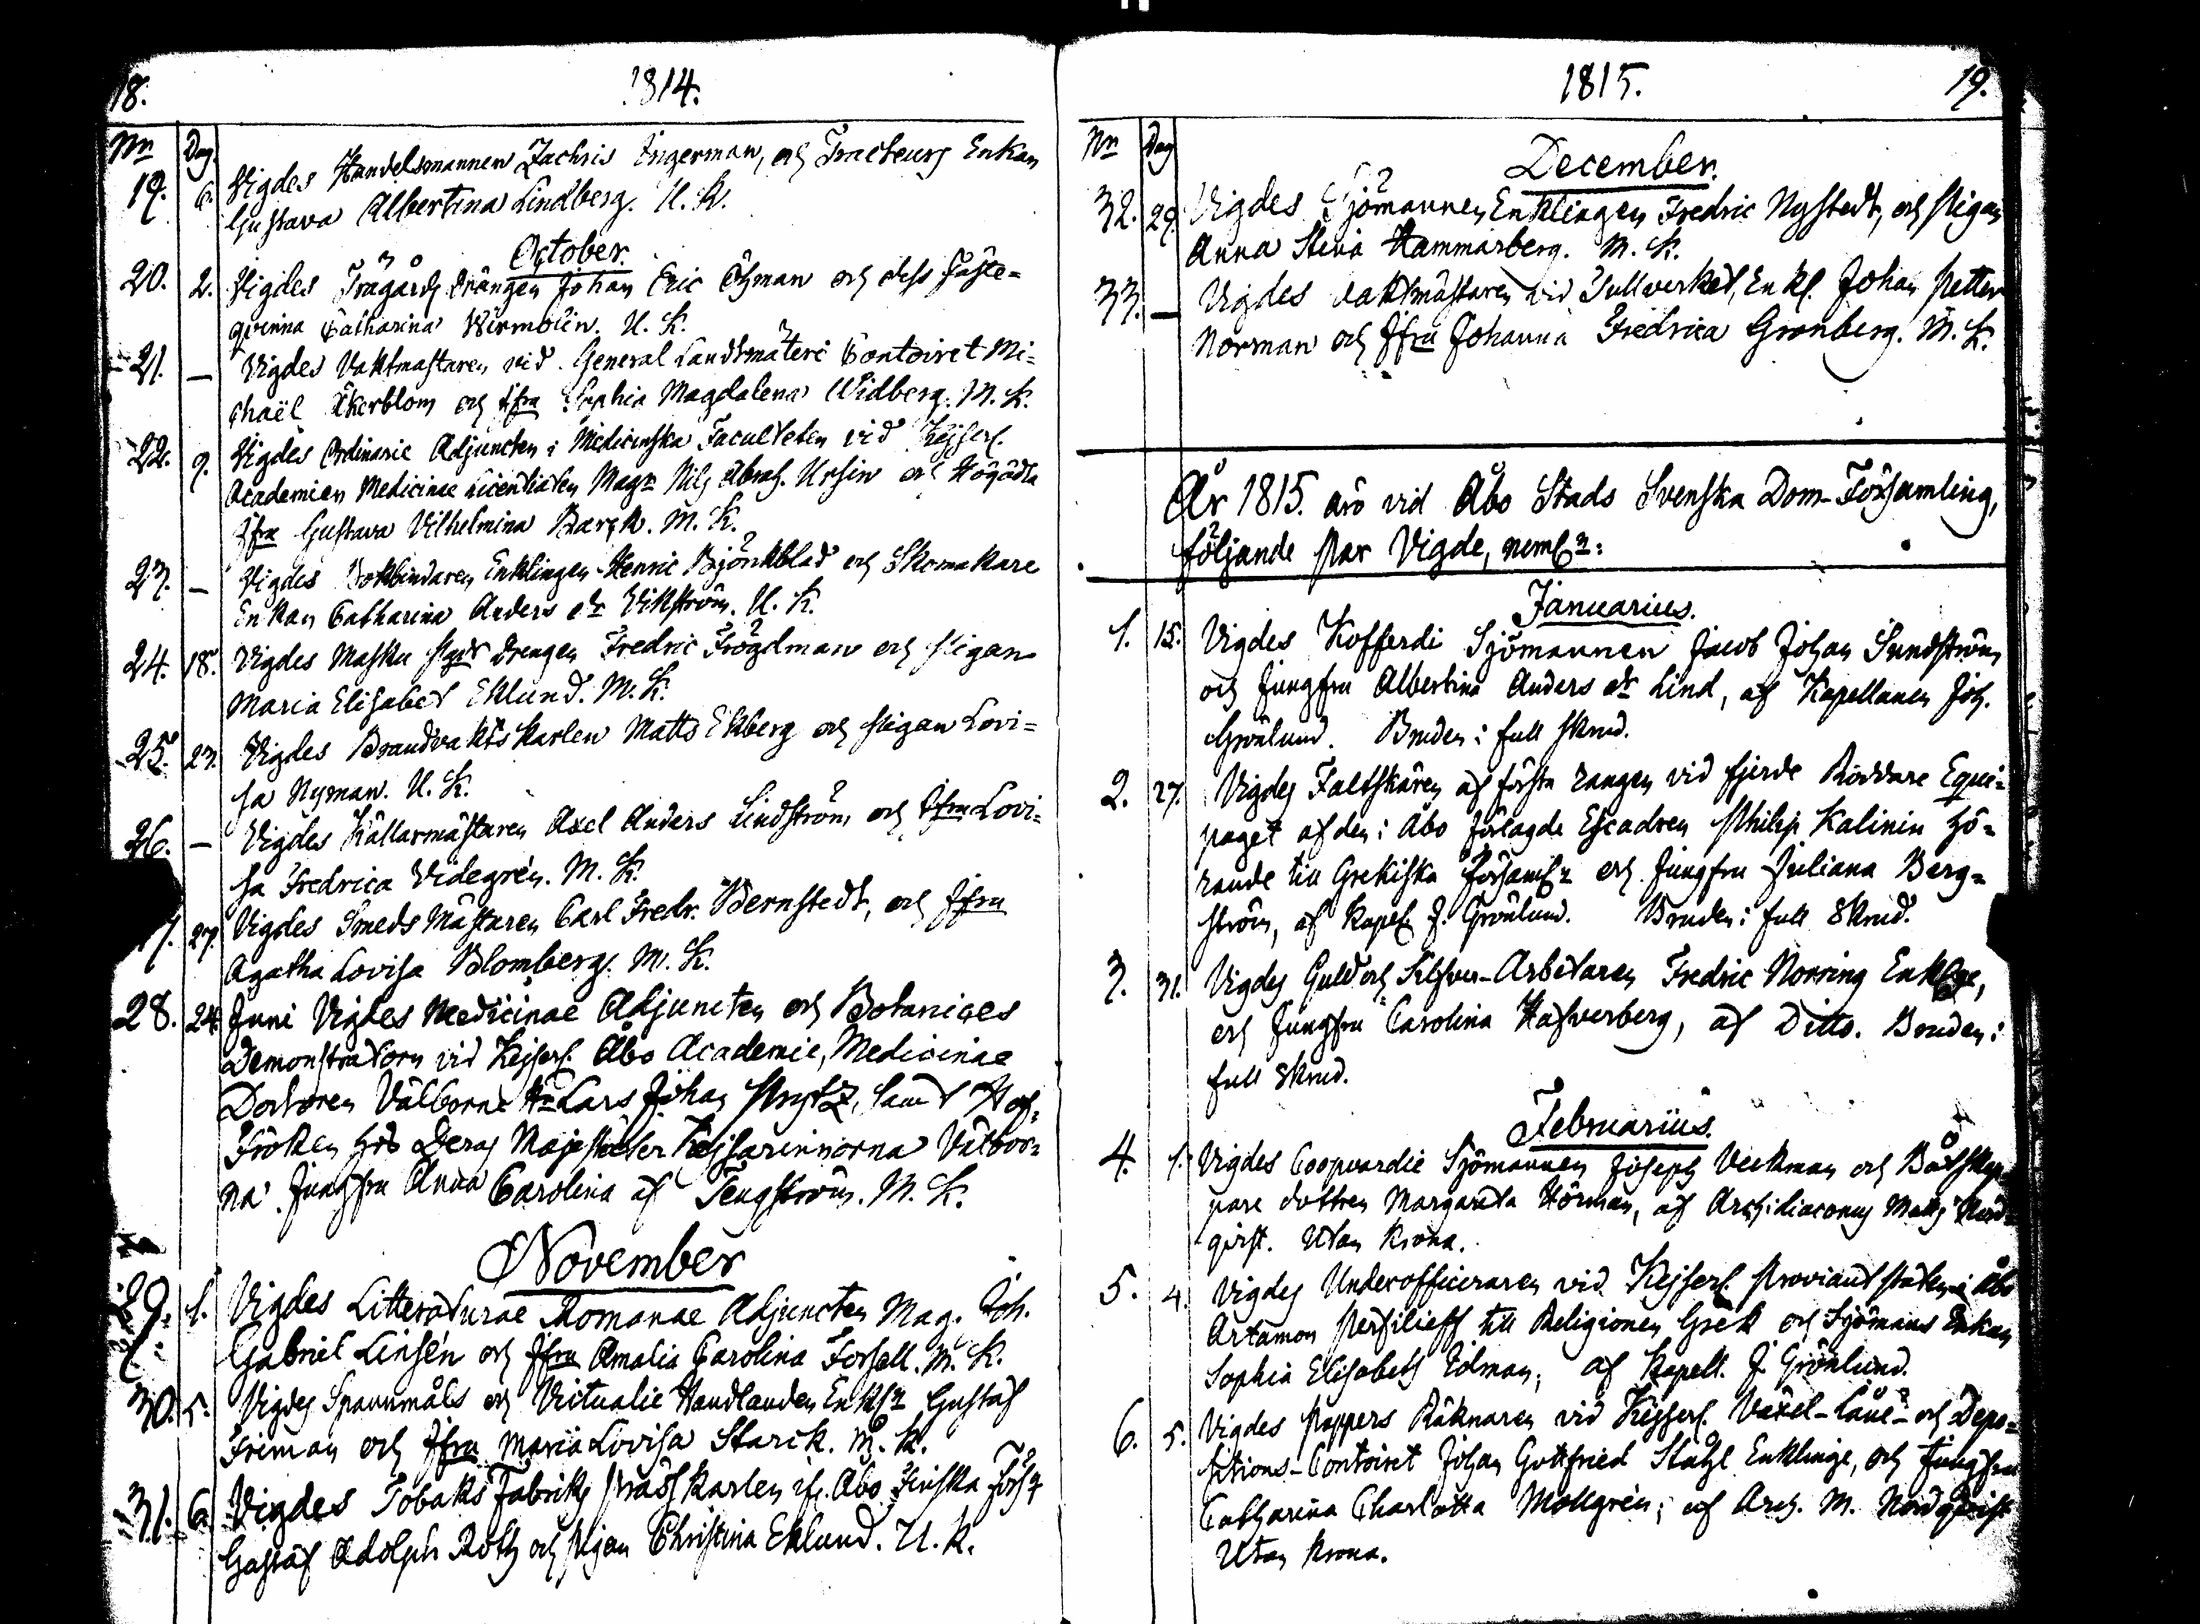 18.
1814.
Nn Dag
19. 6. Vigdes Handelsmannen Zachris Ingerman, och Tracteurs Enkan
Gustava Albertina Lindberg. U. K.
October.
20. 2. Vigdes Trägårds Drängen Johan Eric Öhman och dess Fäste=
qvinna Catharina U. K.
21. — Vigdes Vaktmästaren vid General Landtmäteri Contoiret Mi=
chaël Åkerblom och Jfru Sophia Magdalena Widberg. M. K.
22. 9. Vigdes Ordinarie Adjuncten i Medicinska Faculteten vid Kejserl.
Academien Medicinae Licentiaten Magr Nils Abrah. Ursin och Högädla
Jfru Gustava Vilhelmina M. K.
23. — Vigdes Bokbindaren Enklingen Henric Björkblad och Skomakare
Enkan Catharina Anders dr Vikström. U. K.
24. 18. Vigdes Masku Drengen Fredric Frögdman och Pigan
Maria Elisabet Eklund. M. K.
25. 23. Vigdes Brandvakts Karlen Matts Ekberg och Pigan Lovi=
sa Nyman. U. K.
26. — Vigdes Källarmästaren Axel Anders Lindström och Jfru Lovi=
sa Fredrica Videgrén. M. K.
7. 27. Vigdes Smeds Mästaren Carl Fredr. Bernstedt, och Jfru
Agatha Lovisa Blomberg. M. K.
28. 24. Juni Vigdes Medicinae Adjuncten och Botanices
Demonstratorn vid Kejserl. Åbo Academie, Medicinae
Doctoren Välborne Hr Lars Johan Prytz, samt Hof=
Fröken hos Deras Majestäter Kejsarinnorna Välbor=
na Jungfru Anna Carolina af Tengström. M. K.
November
29. 1. Vigdes Litteraturae Romanae Adjuncten Mag. Joh.
Gabriel Linsén och Jfru Amalia Carolina Forsell. M. K.
30. 5. Vigdes Spannmåls och Victualie Handlanden Gustaf
Friman och Jfru Maria Lovisa Starck. M. K.
31. 6. Vigdes Tobaks Fabriks Karlen Åbo Finska
Gustaf Adolph Roth och Pigan Christina Eklund. U. K.
1815.
19.
Nn Dag
December.
32. 29. Vigdes Sjömannen Enklingen Fredric Nystedt, och Pigan
Anna Stina Hammarberg. M. K.
33. — Vigdes Vaktmästaren vid Tullverket, Enkl. Johan Petter
Norman och Jfru Johanna Fredrica Grönberg. M. K.
År 1815. äro vid Åbo Stads Svenska Dom-Församling,
följande Par Vigde, neml:
Januarius.
1. 15. Vigdes Kofferdi Sjömannen Jacob Johan Sundström
och Jungfru Albertina Anders dr Lind, af Kapellanen Joh.
Grönlund. Bruden i full skrud.
2. 27. Vigdes Fältskären af första rangen vid fjerde Roddare Equi=
paget af den i Åbo förlagde Escadren Philip Kalinin hö=
rande till Grekiska Församl och Jungfru Juliana Berg=
ström, af Kapel. J. Grönlund. Bruden i full Skrud.
3. 31. Vigdes Guld och Silfver-Arbetaren Fredric Norring
och Jungfru Carolina Hafverberg, af Ditto. Bruden i
full skrud.
Februarius.
4. 1. Vigdes Coopvardie Sjömannen Joseph Veckman och
pare dottren Margareta Hörman, af Archidiaconus Matts Nord=
qvist. Utan Krona.
5. 4. Vigdes Underofficeraren vid Kejserl. Proviant staten i Åbo
Artamon till Religionen Grek och Sjömans Enkan
Sophia Elisabeth Edman, af Kapell. J. Grönlund.
6. 5. Vigdes Pappers Räknaren vid Kejserl. Växel-Låne- och Depo=
sitions-Contoiret Johan Gottfried Ståhl Enklinge, och Jungfru
Catharina Charlotta Mollgrén; af Arch. M. Nordqvist
Utan Krona.